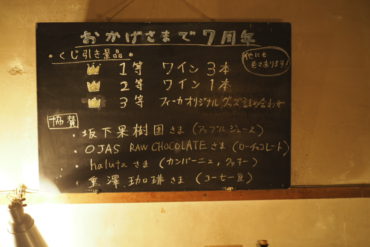 おかげさまで7周年
・くじ引き景品・
1等 ワイン3本
2等 ワイン1本
3等 フィーカオリジナルグッズ詰め合わせ
他にも
もりあります!
協賛
・坂下果樹園さま(アップルジュース)
・OJAS RAW CHOCOLATEさま(ローチョコレート)
・halutaさま(カンパーニュ、クッキー)
・黒澤珈琲さま(コーヒー豆)